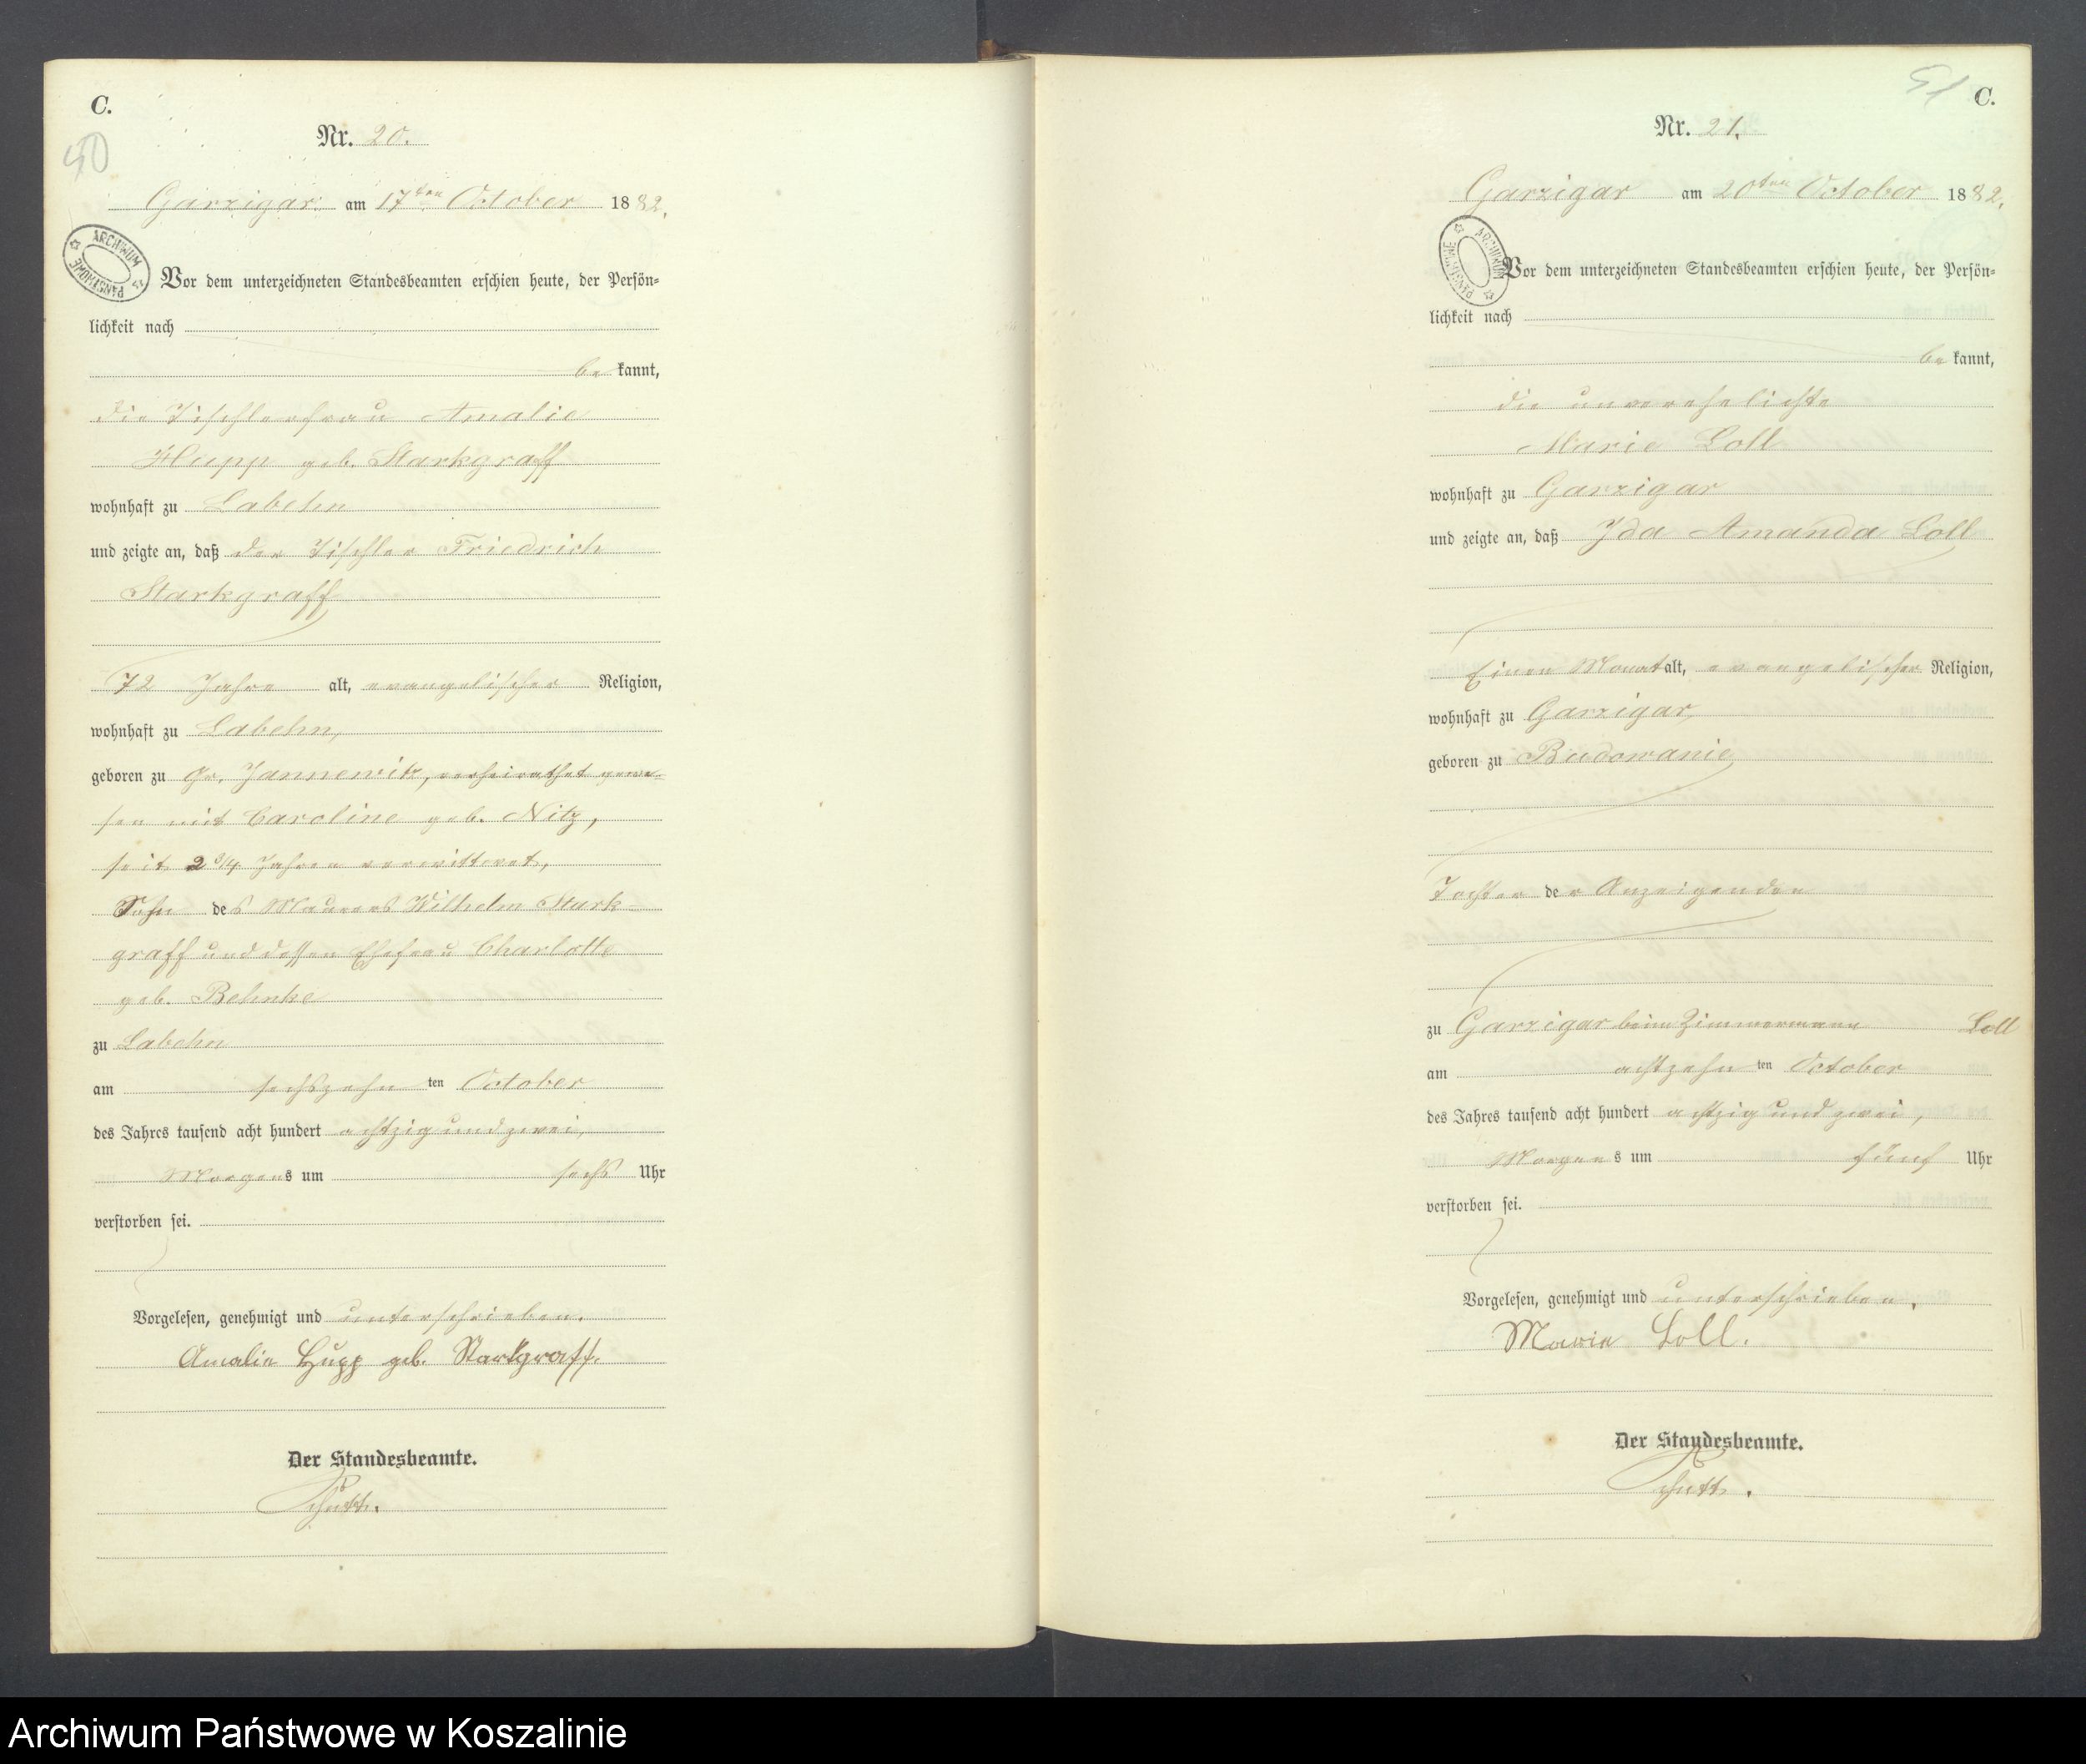 C.
50
Nr. 20.
Garzigar am 17ten October 1882.
ARCHIWUM PAŃSTWOWE
Vor dem unterzeichneten Standesbeamten erschien heute, der Persön=
lichkeit nach
be kannt,
die Tischlerfrau Amalie
Hupp geb. Starkgraff
wohnhaft zu Labehn
und zeigte an, daß der Tischler Friedrich
Starkgraff
72 Jahre alt, evangelischer Religion,
wohnhaft zu Labehn,
geboren zu Gr. Jannewitz, verheirathet gewe=
sen mit Caroline geb. Nitz,
seit 2 3/4 Jahren verwittwet,
Sohn des Maurers Wilhelm Stark=
graff und dessen Ehefrau Charlotte
geb. Behnke
zu Labehn
am sechszehn ten October
des Jahres tausend acht hundert achtzig und zwei,
Morgens um sechs Uhr
verstorben sei.
Vorgelesen, genehmigt und unterschrieben.
Amalie Hupp geb. Starkgraff.
Der Standesbeamte.
51
C.
Nr. 21.
Garzigar am 20ten October 1882.
ARCHIWUM PAŃSTWOWE
Vor dem unterzeichneten Standesbeamten erschien heute, der Persön=
lichkeit nach
be kannt,
die unverehelichte
Marie Loll
wohnhaft zu Garzigar
und zeigte an, daß Ida Amanda Loll
Einen Monat alt, evangelischer Religion,
wohnhaft zu Garzigar,
geboren zu Budowanie
Tochter der Anzeigenden
zu Garzigar beim Zimmermann Loll
am achtzehn ten October
des Jahres tausend acht hundert achtzig und zwei,
Morgens um fünf Uhr
verstorben sei.
Vorgelesen, genehmigt und unterschrieben.
Marie Loll.
Der Standesbeamte.
Archiwum Państwowe w Koszalinie